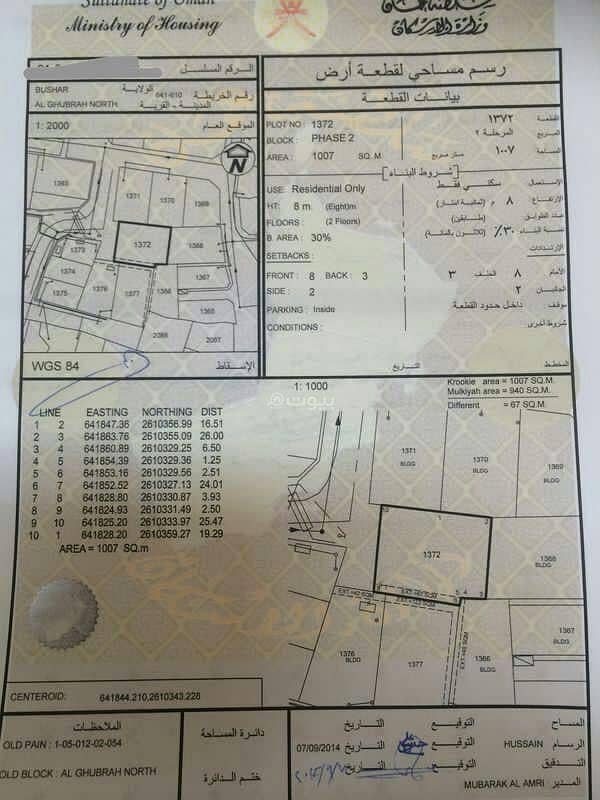 Sultanate of Oman
Ministry of Housing
سلطنة عمان
وزارة الإسكان
الرقم المسلسل
BUSHAR
الولاية
AL GHUBRAH NORTH
641-610 رقم الخريطة
المدينة - القرية
1: 2000
الموقع العام
N
1363
1371
1370
1369
1372
1368
1373
1374
1376
1377
1366
1367
1375
1365
2066
2067
WGS 84
الإسقاط
رسم مساحي لقطعة أرض
بيانات القطعة
PLOT NO : 1372
١٣٧٢ القطعة
BLOCK : PHASE 2
المرحلة ٢ المربع
AREA : 1007 SQ. M
متر مربع ١٠٠٧ المساحة
شروط البناء
USE: Residential Only
سكني فقط الإستعمال
HT: 8 m. (Eight)m
٨ م (ثمانية امتار) الإرتفاع
FLOORS : (2 Floors)
(طابقين) عدد الطوابق
B. AREA : 30%
٣٠٪ (ثلاثون بالمائة) نسبة البناء
SETBACKS :
الإرتدادات
FRONT : 8 BACK : 3
الأمام ٨ الخلف ٣
SIDE : 2
الجانبين ٢
PARKING : Inside
موقف داخل حدود القطعة
CONDITIONS :
شروط أخرى
المخطط
التاريخ
1: 1000
Krookie area = 1007 SQ.M.
Mulkiyah area = 940 SQ.M.
Different = 67 SQ.M.
بيوت
LINE EASTING NORTHING DIST
1 2 641847.36 2610356.99 16.51
2 3 641863.76 2610355.09 26.00
3 4 641860.89 2610329.25 6.50
4 5 641854.39 2610329.36 1.25
5 6 641853.16 2610329.56 2.51
6 7 641852.52 2610327.13 24.01
7 8 641828.80 2610330.87 3.93
8 9 641824.93 2610331.49 2.50
9 10 641825.20 2610333.97 25.47
10 1 641828.20 2610359.27 19.29
AREA = 1007 SQ.m
1371
BLDG
1370
BLDG
1369
BLDG
10
1
2
1372
1368
BLDG
5 4 3
1376
BLDG
1377
1366
BLDG
1367
BLDG
CENTEROID: 641844.210,2610343.228
الملاحظات
OLD PAIN : 1-05-012-02-054
OLD BLOCK : AL GHUBRAH NORTH
دائرة المساحة
ختم الدائرة
المساح
التوقيع
التاريخ
الرسام HUSSAIN
التوقيع
التاريخ 07/09/2014
التدقيق
التوقيع
التاريخ
المدير MUBARAK AL AMRI